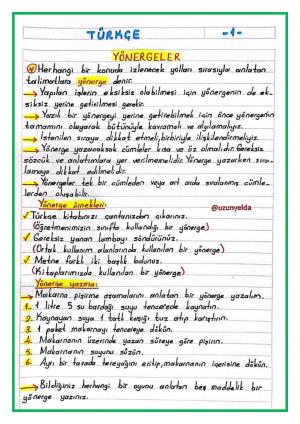 TÜRKÇE -1-
YÖNERGELER
Herhangi bir konuda izlenecek yolları sırasıyla anlatan
talimatlara yönerge denir.
→ Yapılan işlerin eksiksiz olabilmesi için yönergenin de ek-
siksiz yerine getirilmesi gerekir.
→ Yazılı bir yönergeyi yerine getirebilmek için önce yönergenin
tamamını okuyarak bütünüyle kavramalı ve algılamalıyız.
→ İstenilen sıraya dikkat etmeli, birbiriyle ilişkilendirmeliyiz.
→ Yönerge yazarken cümleler kısa ve öz olmalıdır. Gereksiz
sözcük ve anlatımlara yer verilmemelidir. Yönerge yazarken sıra-
lamaya dikkat edilmelidir.
→ Yönergeler tek bir cümleden veya art arda sıralanmış cümle-
lerden oluşabilir.
Yönerge örnekleri:
@uzunyelda
✓ Türkçe kitabınızı çantanızdan çıkarınız.
(Öğretmenimizin sınıfta kullandığı bir yönerge)
✓ Gereksiz yanan lambayı söndürünüz.
(Ortak kullanım alanlarında kullanılan bir yönerge)
✓ Metne farklı iki başlık bulunuz.
(Kitaplarımızda kullanılan bir yönerge)
Yönerge yazma:
→ Makarna pişirme aşamalarını anlatan bir yönerge yazalım.
1. 1 litre 5 su bardağı suyu tencerede kaynatın.
2. Kaynayan suya 1 tatlı kaşığı tuz atıp karıştırın.
3. 1 paket makarnayı tencereye dökün.
4. Makarnanın üzerinde yazan süreye göre pişirin.
5. Makarnanın suyunu süzün.
6. Ayrı bir tavada tereyağını eritip, makarnanın içerisine dökün.
→ Bildiğiniz herhangi bir oyunu anlatan beş maddelik bir
yönerge yazınız.